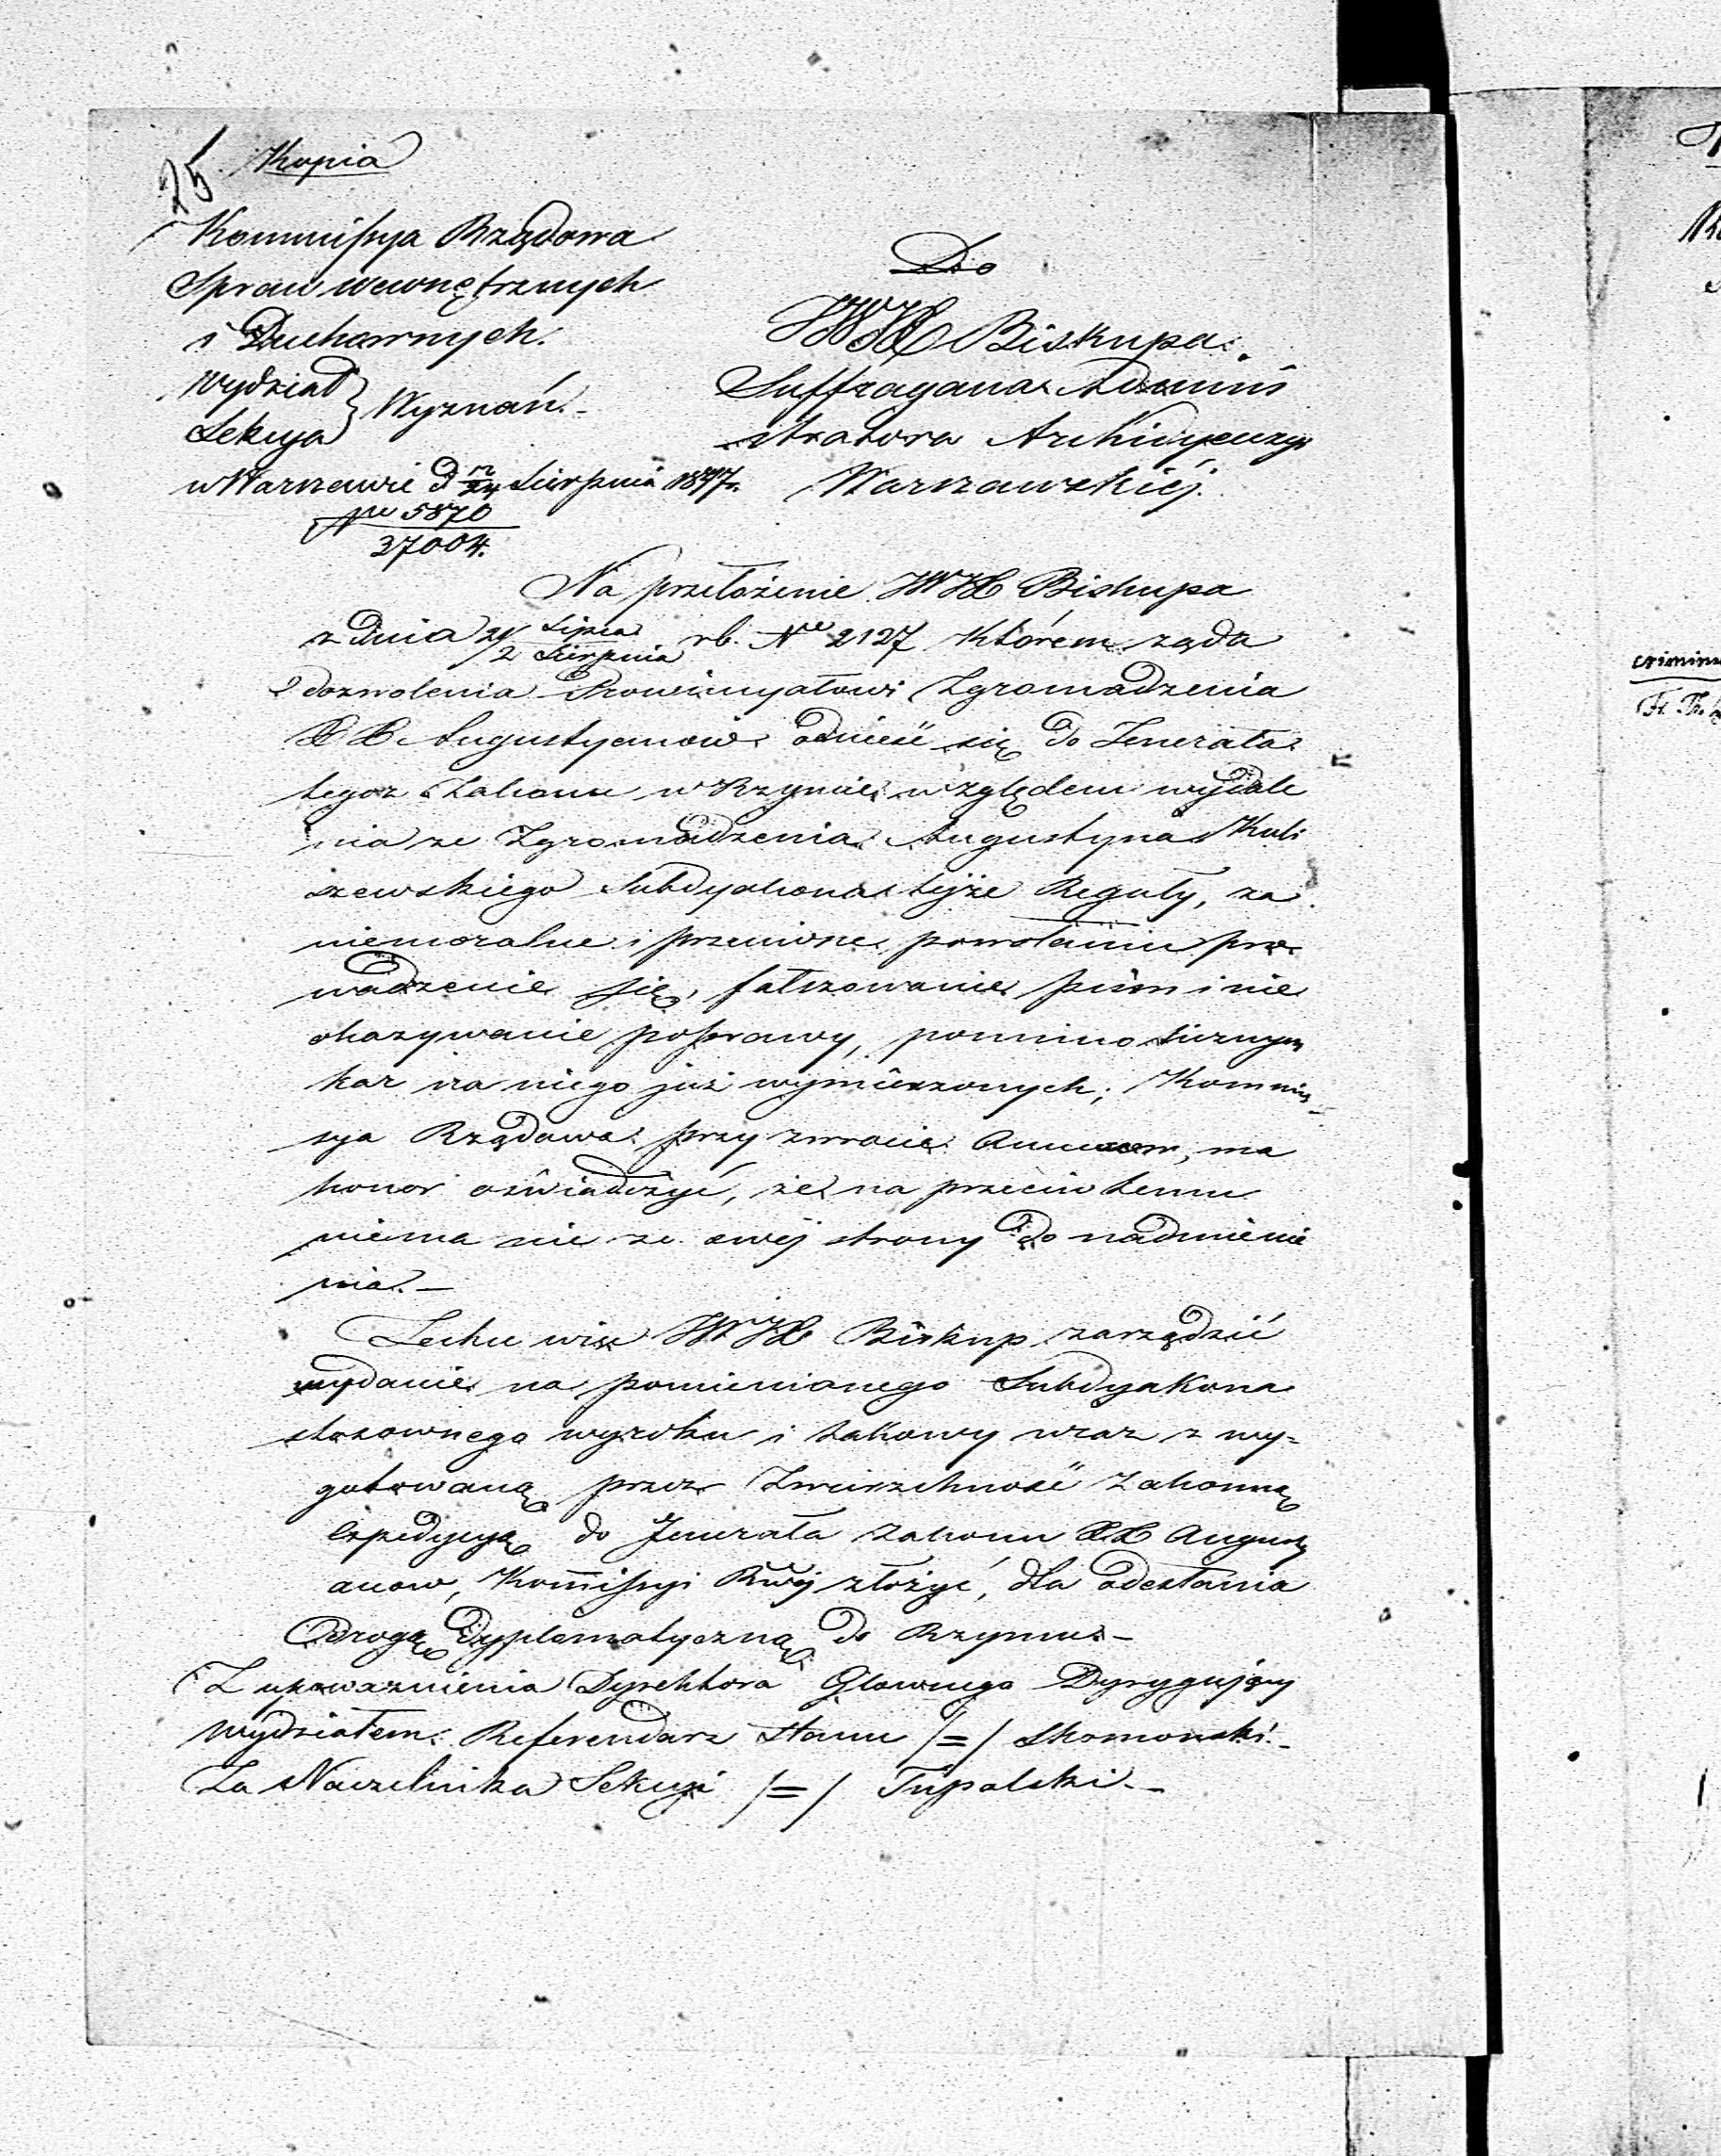 75 Kopia
Kommissya Rządowa
Spraw wewnętrznych
i Duchownych.
Wydział
Sekcya } Wyznań.-
w Warszawie d 12/24 Sierpnia 1847 r.
Nro 5870
37004.
Do
JWJX Biskupa
Suffragana Admini
stratora Archidyecezyi
Warszawskiéj.
Na przełożenie JWJX Biskupa
z dnia 21 Lipca/2 Sierpnia rb. Nro 2127 którem żąda
dozwolenia Prowincyałowi Zgromadzenia
XX. Augustyanow odnieść się do Jenerała
tegoż Zakonu w Rzymie, względem wydale
nia ze Zgromadzenia Augustyna Kuli
szewskiego Subdyakona tejże Reguły, za
niemoralne i przeciwne powołaniu pro
wadzenie się, fałszowanie pism i nie
okazywanie poprawy, pomimo licznych
kar na niego już wymierzonych; Kommis-
sya Rządowa przy zwrocie Annexow, ma
honor oświadczyć, że na przeciw temu
niema nic ze swéj strony do nadmienie
nia.-
Zechce więc JWJX Biskup zarządzić
wydanie na pomienionego Subdyakona
stosownego wyroku i takowy wraz z wy-
gotowaną przez Zwierzchność Zakonną
Expedycyą do Jenerała zakonu XX Augusty
anow, Kommissyi Rwéj złożyć, dla odesłania
drogą dyplomatyczną do Rzymu.-
Z upoważnienia Dyrektora Głownego Dyrygujący
Wydziałem. Referendarz Stanu /=/ Skomorski.-
Za Naczelnika Sekcyi /=/ Tupalski.-